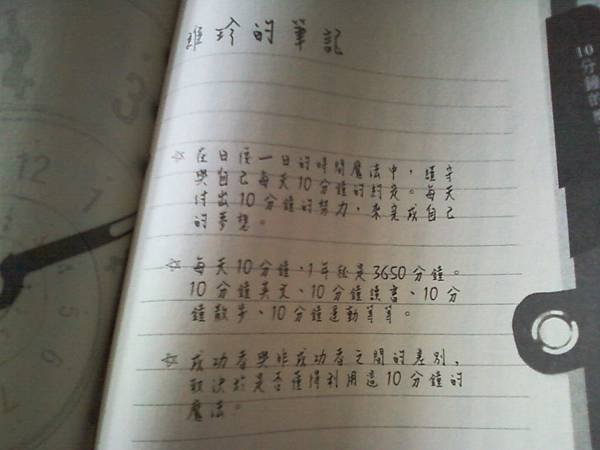 維珍的筆記
☆ 在日復一日的時間魔法中，謹守
與自己每天10分鐘的約定。每天
付出10分鐘的努力，來完成自己
的夢想。
☆ 每天10分鐘，1年就是3650分鐘。
10分鐘英文、10分鐘讀書、10分
鐘散步、10分鐘運動等等。
☆ 成功者與非成功者之間的差別，
取決於是否懂得利用這10分鐘的
魔法。
10分鐘的
12
3
7